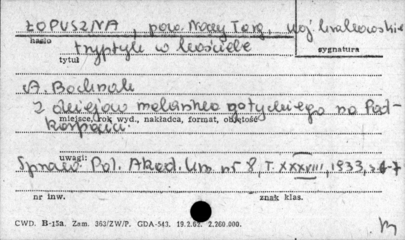 ŁOPUSZNA, pow. Nowy Targ, woj. krakowskie
hasło
tryptyk w kościele
sygnatura
tytuł
A. Bochnak
Z dziejów malarstwa gotyckiego na Pod-
miejsce, rok wyd., nakładca, format, objętość
karpaciu.
uwagi:
Spraw. Pol. Akad. Um. nr 8, T. XXXVIII, 1933, s. 6-7
nr inw.
znak klas.
CWD. B-15a. Zam. 363/ZW/P. GDA-543. 19.2.62. 2.260.000.